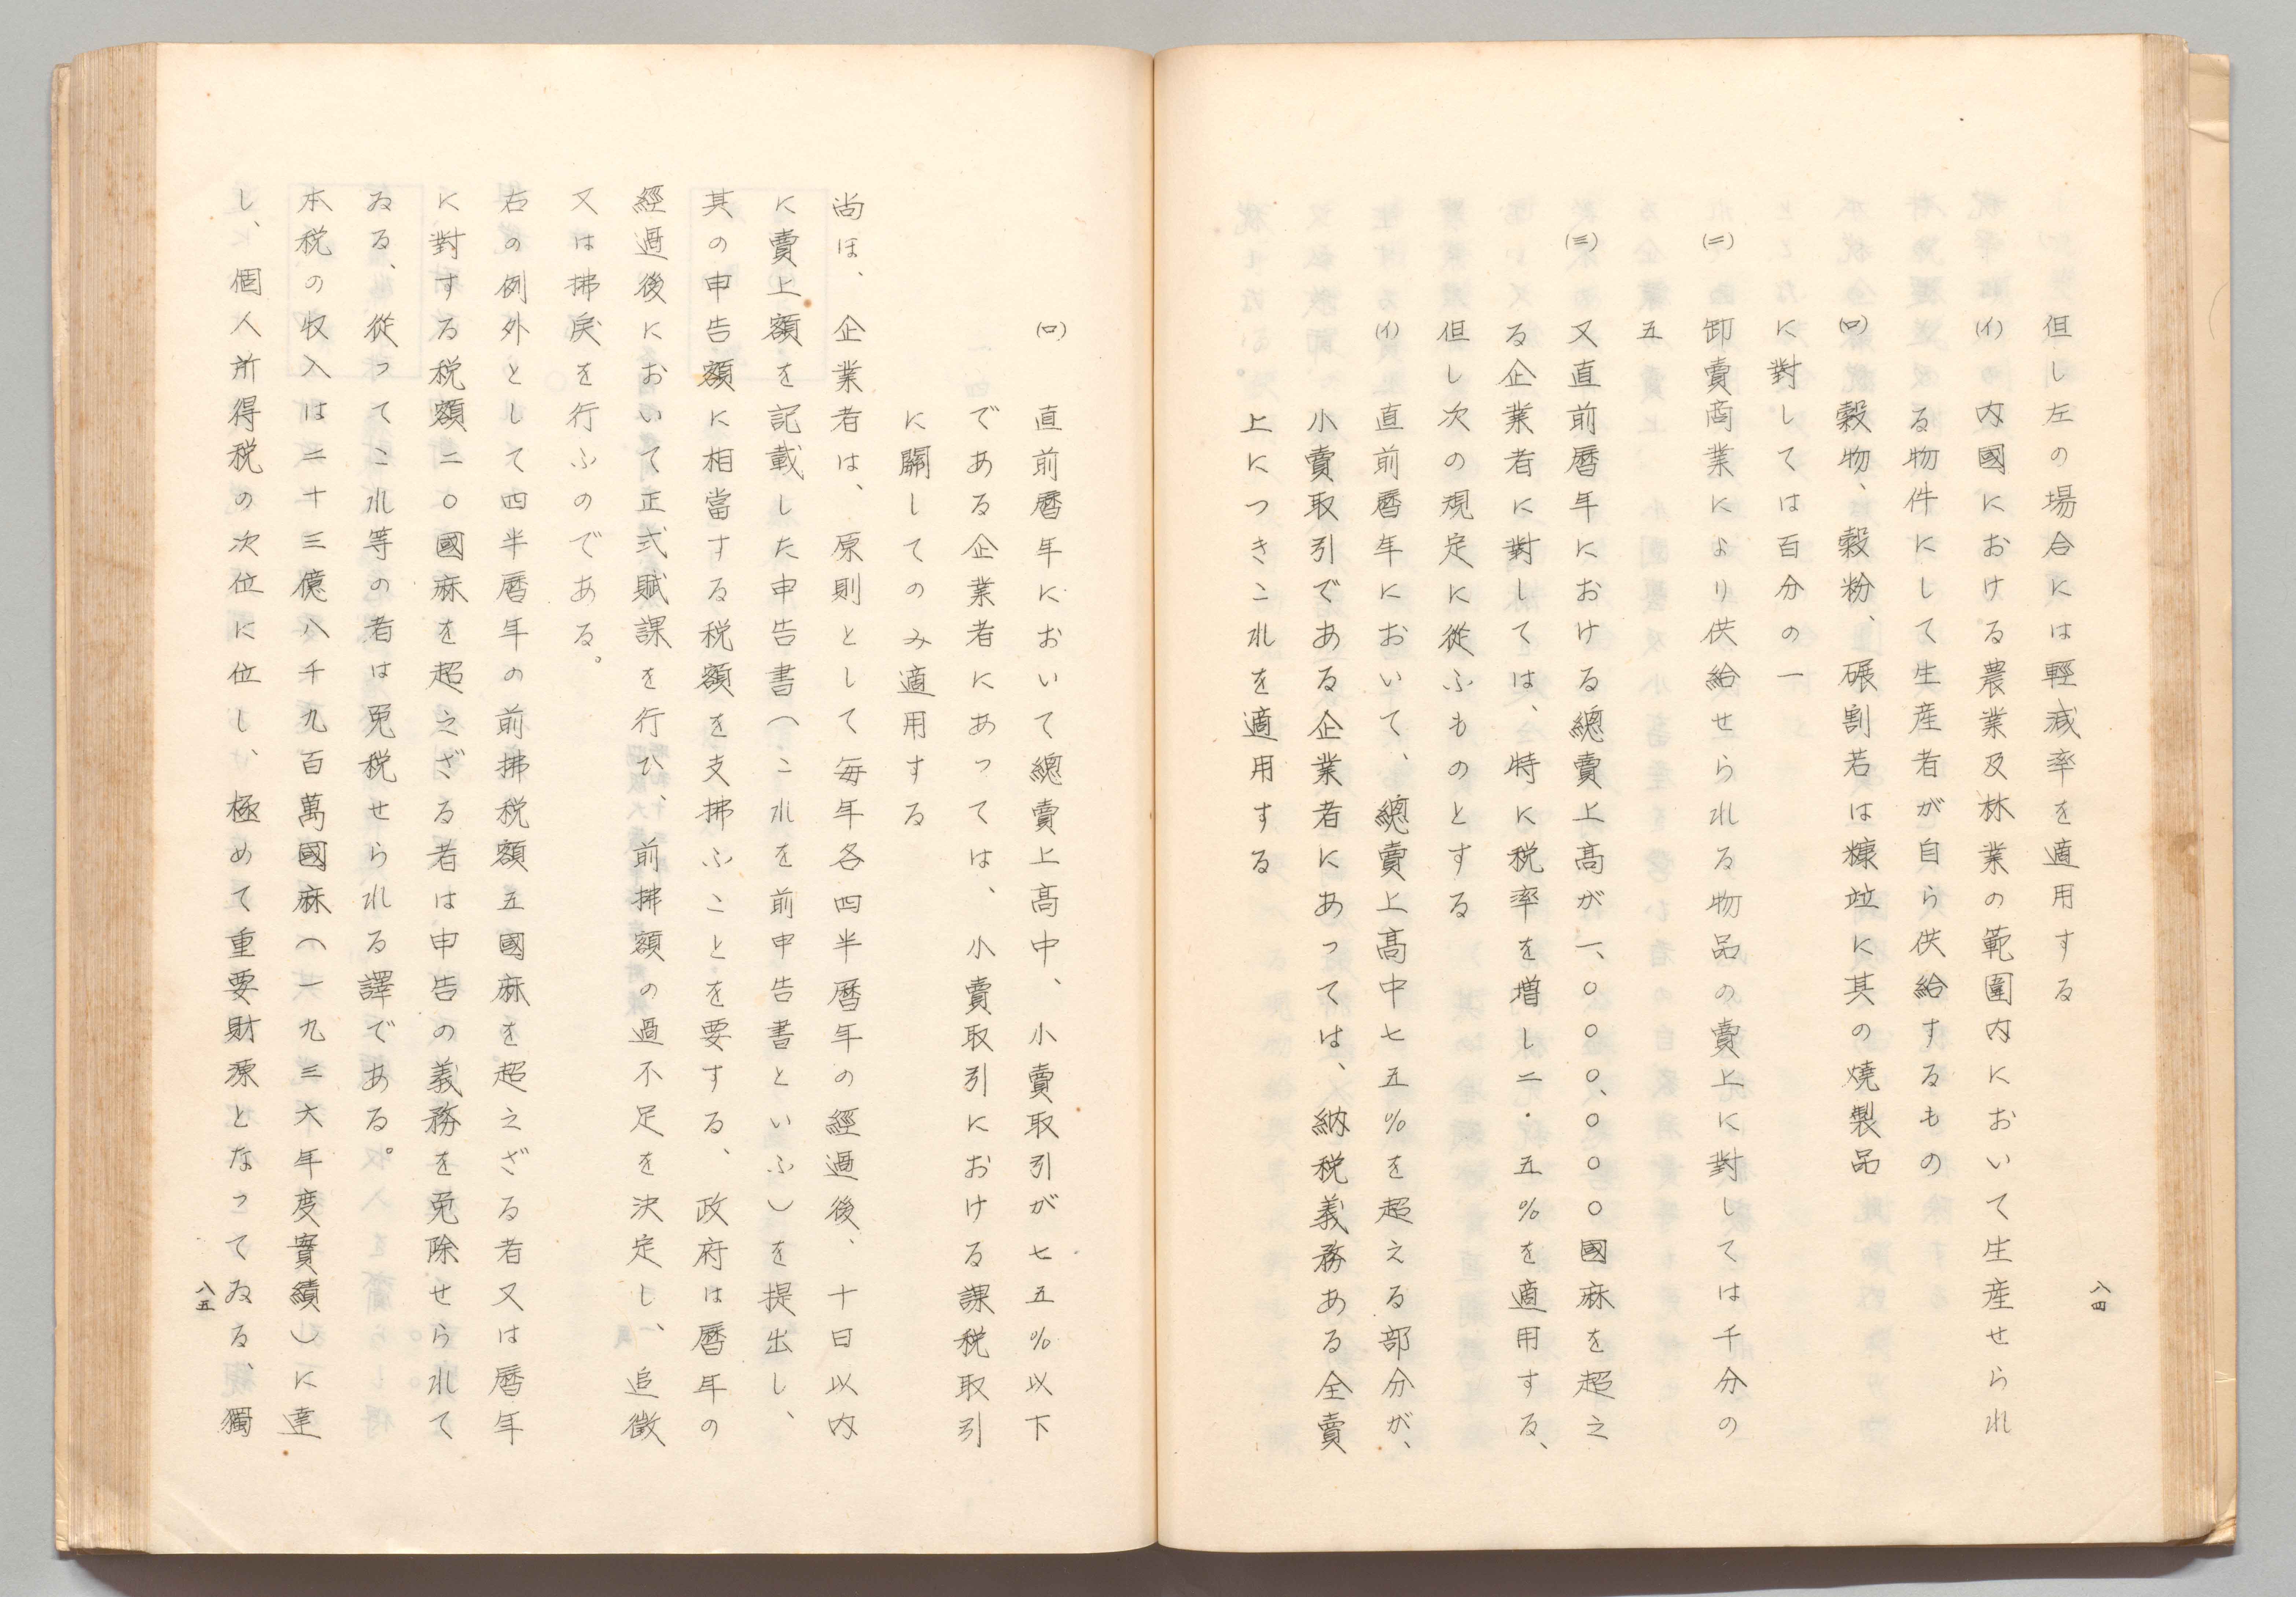 但し左の場合には輕減率を適用する
(イ)内國における農業及林業の範圍内において生産せられ
る物件にして生産者が自ら供給するもの
(ロ)穀物、穀粉、碾割若は糠竝に其の燒製品
に對しては百分の一
(二)卸賣商業により供給せられる物品の賣上に對しては千分の
五
(三)又直前暦年における總賣上高が一、〇〇〇、〇〇〇國麻を超之
る企業者に對しては、特に税率を増し二・五%を適用する、
但し次の規定に從ふものとする
(イ)直前暦年において、總賣上高中七五%を超える部分が、
小賣取引である企業者にあつては、納税義務ある全賣
上につきこれを適用する
八四
(ロ)直前暦年において總賣上高中、小賣取引が七五%以下
である企業者にあつては、小賣取引における課税取引
に關してのみ適用する
尚ほ、企業者は、原則として毎年各四半暦年の經過後、十日以内
に賣上額を記載した申告書(これを前申告書といふ)を提出し、
其の申告額に相當する税額を支拂ふことを要する、政府は暦年の
經過後において正式賦課を行ひ、前拂額の過不足を決定し、追徴
又は拂戻を行ふのである。
右の例外として四半暦年の前拂税額五國麻を超之ざる者又は暦年
に對する税額二〇國麻を超之ざる者は申告の義務を免除せられて
ゐる、從つてこれ等の者は免税せられる譯である。
本税の収入は二十三億八千九百萬國麻(一九三六年度實績)に達
し、個人所得税の次位に位し、極めて重要財源となつてゐる、獨
八五